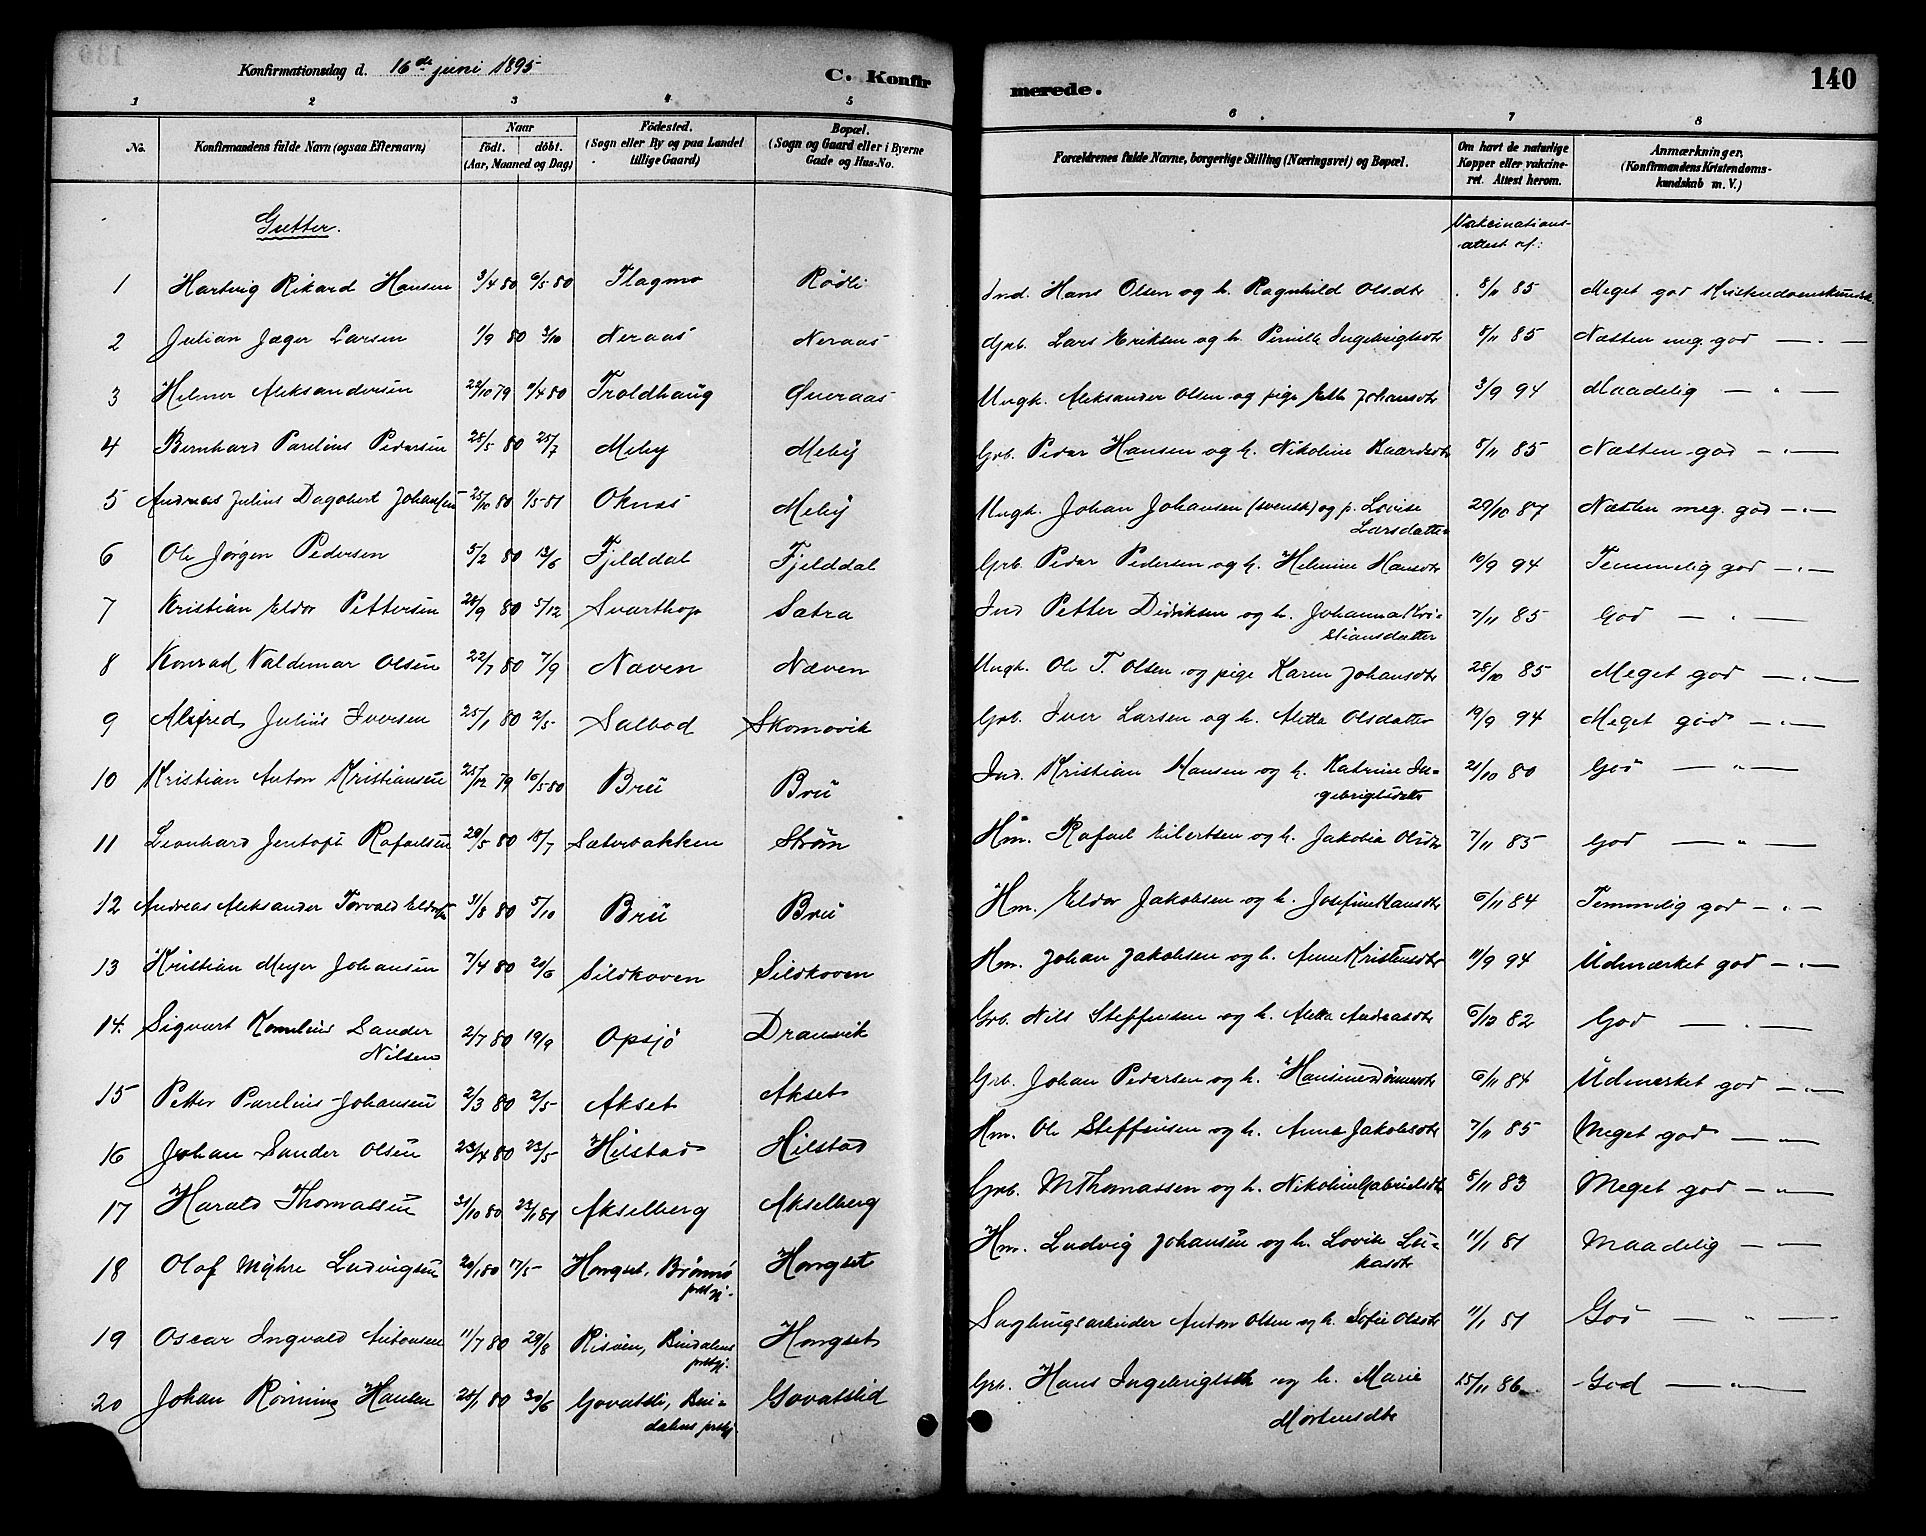 Konfirmationsdag d. 16de juni 1895
C. Konfir
merede.
140
1 2 3 4 5 6 7 8
No.
Konfirmandens fulde Navn (ogsaa Efternavn)
Naar
födt. döbt.
(Aar, Maaned og Dag)
Födested.
(Sogn eller By og paa Landet
tillige Gaard)
Bopæl.
(Sogn og Gaard eller i Byerne
Gade og Hus-No.
Forældrenes fulde Navne, borgerlige Stilling (Næringsvei) og Bopæl.
Om havt de naturlige
Kopper eller vakcine-
ret. Attest herom.
Anmærkninger,
(Konfirmandens Kristendoms-
kundskab m. V.)
Gutter.
Vakcinations-
attest af:
1 Hartvig Rikard Hansen 3/4 80 6/5 80 Flagmo Rödli Ind. Hans Olsen og h. Ragnhild Olsdtr 8/11 85 Meget god Kristendomskundsk.
2 Julian Jæger Larsen 1/9 80 3/10 Neraas Neraas Grb. Lars Eriksen og h. Pernille Ingebrigtsdtr 8/11 85 Næsten meg. god — . —
3 Helmer Aleksandersen 22/10 79 4/80 Troldhaug Øveraas Ungk. Aleksander Olsen og pige Johansdtr 3/9 94 Maadelig — " —
4 Bernhard Parelius Pedersen 28/5 80 25/7 Meby Meby Grb. Peder Hansen og h. Nikoline Baardsdtr 8/11 85 Næsten god — . —
5 Andreas Julius Dagobert Johansen 25/10 80 1/5 81 Oknes Meby Ungk. Johan Johansen (svensk) og p. Lovise
Larsdatter 29/10 87 Næsten meg. god — . —
6 Ole Jörgen Pedersen 5/2 80 13/6 Fjelddal Fjelddal Grb. Peder Pedersen og h. Helmine Hansdtr 10/9 94 Temmelig god — . —
7 Kristian Eldor Pettersen 28/9 80 5/12 Svarthop Sætra Ind Petter Didriksen og h. Johanna Kri-
stiansdatter 7/11 85 God — . —
8 Konrad Valdemar Olsen 22/7 80 7/9 Næven Næven Ungk. Ole T. Olsen og pige Karen Johansdtr 28/10 85 Meget god — . —
9 Alfred Julius Iversen 25/1 80 2/5 Salbod Skomovik Grb. Iver Larsen og h. Aletta Olsdatter 19/9 94 Meget god — . —
10 Kristian Anton Kristiansen 25/12 79 16/5 80 Bru Bru Ind. Kristian Hansen og h. Katrine In-
gebrigtsdatr 21/10 80 God — " —
11 Leonhard Jentoft Rafaelsen 20/5 80 18/7 Sæterbakken Ström Hm. Rafael Eilertsen og h. Jakobia Olsdtr 7/11 85 God — " —
12 Andreas Aleksander Torvald 31/8 80 5/10 Bru Bru Hm. Eldor Jakobsen og h. Josefine Hansdtr 6/11 84 Temmelig god — . —
13 Kristian Meyer Johansen 7/4 80 20/6 Sildhoven Sildhoven Hm. Johan Jakobsen og h. Anne Kristensdtr 11/9 94 Udmærket god — . —
14. Sigvart Kornelius Sander
Nilsen 2/7 80 19/9 Opsjö Dransvik Grb. Nils Steffensen og h. Aletta Andreasdtr 6/10 82 God — . —
15 Petter Parelius Johansen 2/3 80 2/5 Akset Akset Grb. Johan Pedersen og h. Hansine 6/11 84 Udmærket god — . —
16 Johan Sander Olsen 23/4 80 23/5 Hilstad Hilstad Hm. Ole Steffensen og h. Anna Jakobsdtr 7/11 85 Meget god — " —
17 Harald Thomassen 31/10 80 23/1 81 Akselberg Akselberg Grb. M Thomassen og h. Nikoline Gabrielsdtr 8/11 83 Meget god — " —
18 Olaf Myhre Ludvigsen 20/1 80 17/5 Hongset, Brönnö
prstgj. Hongset Hm. Ludvig Johansen og h. Lovise Lu-
kasdtr 11/1 81 Maadelig — " —
19 Oscar Ingvald Antonsen 11/7 80 29/8 Risøen, Bindalens
prstgj. Hongset Sagbrugsarbeider Anton Olsen og h. Sofie Olsdtr 11/1 81 God — " —
20 Johan Rönning Hansen 28/1 80 30/6 Govatsli, Bin-
dalens prstgj. Govatslid Grb. Hans Ingebrigtsen og h. Marie
Mortensdtr 25/11 86 God — " —